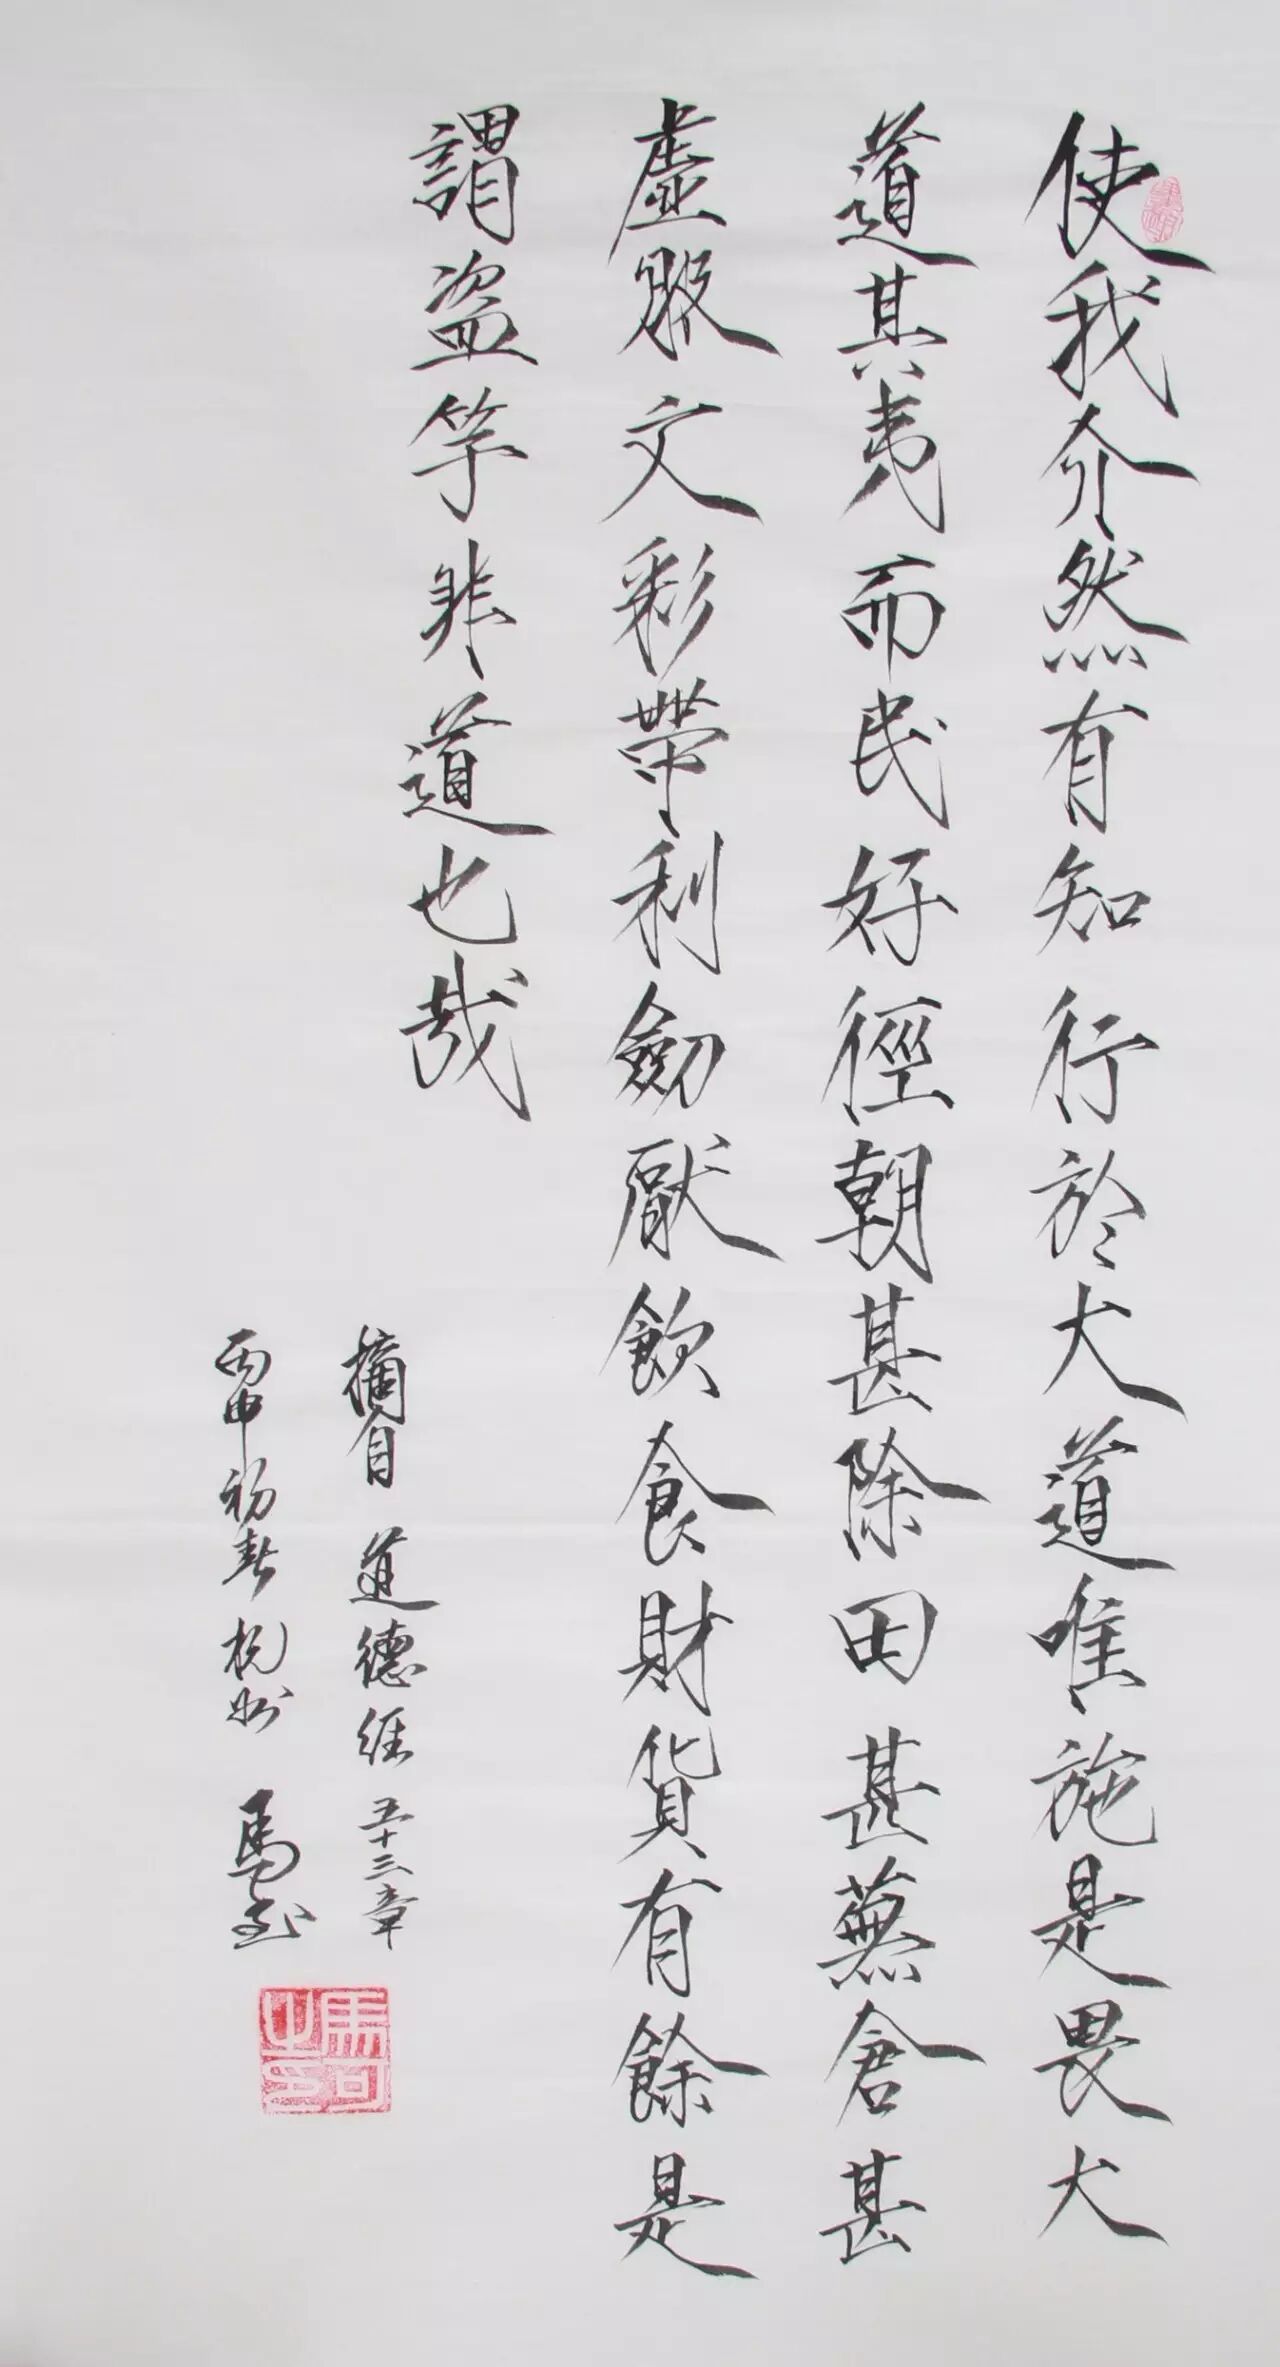 使我介然有知行於大道唯施是畏大
道甚夷而民好徑朝甚除田甚蕪倉甚
虛服文彩帶利劍厭飲食財貨有餘是
謂盜竽非道也哉
摘自 道德經 五十三章
丙申初春 杭州 馬